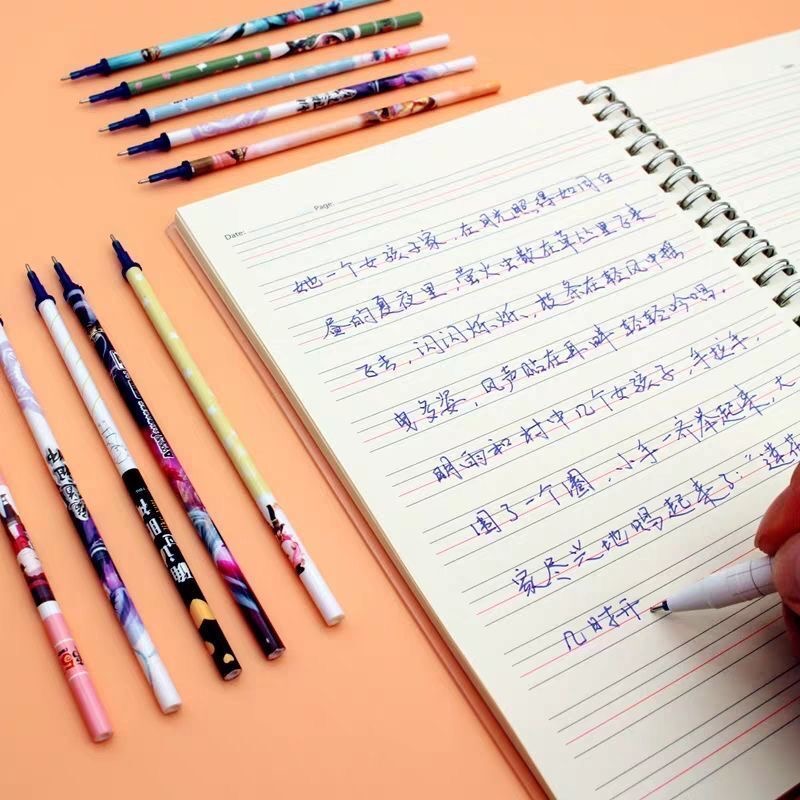 Date:
Page:
她一个女孩子家，在月光照得如同白
昼的夏夜里，萤火虫散在草丛里飞来
飞去，闪闪烁烁，枝条在轻风中摇
曳多姿，风声贴在耳畔轻轻吟唱。
明雨和村中几个女孩子，手拉手，
围了一个圈，小手一齐举起来，大
家尽兴地唱起来了：“莲花
几时开